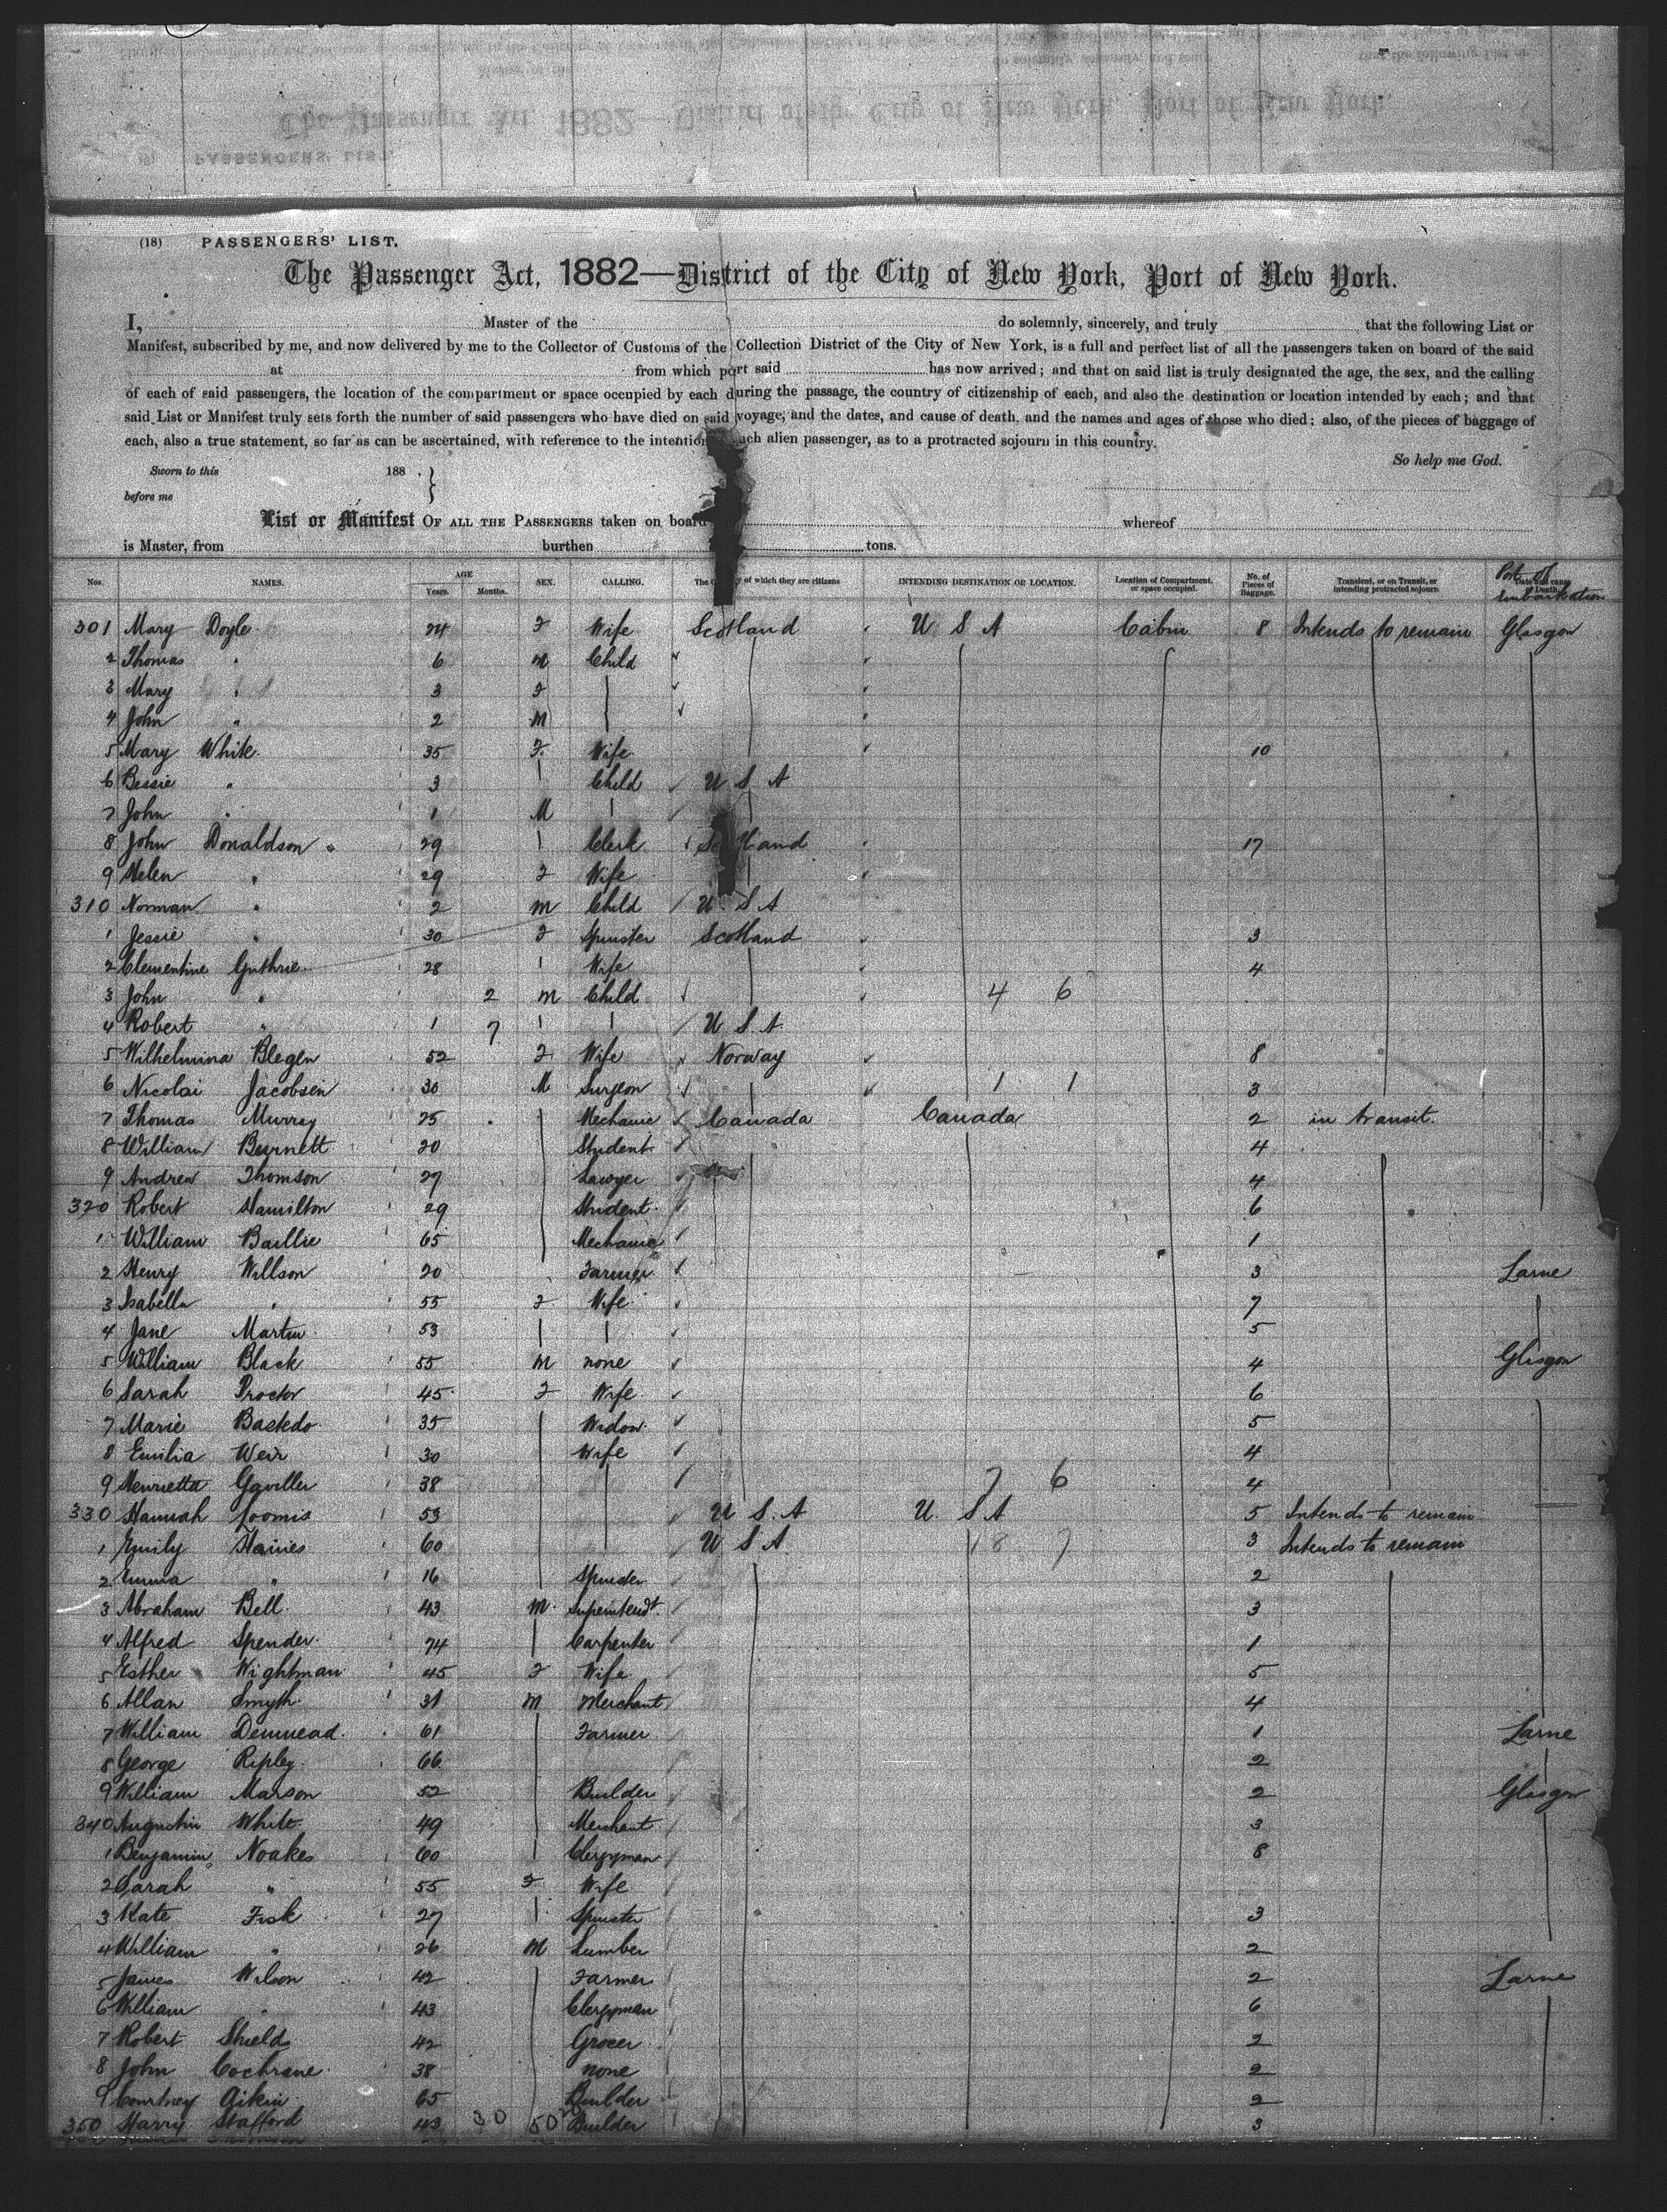 (18) PASSENGERS' LIST.
The Passenger Act, 1882—District of the City of New York, Port of New York.
I, Master of the do solemnly, sincerely, and truly that the following List or
Manifest, subscribed by me, and now delivered by me to the Collector of Customs of the Collection District of the City of New York, is a full and perfect list of all the passengers taken on board of the said
at from which port said has now arrived; and that on said list is truly designated the age, the sex, and the calling
of each of said passengers, the location of the compartment or space occupied by each during the passage, the country of citizenship of each, and also the destination or location intended by each; and that
said List or Manifest truly sets forth the number of said passengers who have died on said voyage, and the dates, and cause of death, and the names and ages of those who died; also, of the pieces of baggage of
each, also a true statement, so far as can be ascertained, with reference to the intention each alien passenger, as to a protracted sojourn in this country.
So help me God.
Sworn to this 188 .
before me
List or Manifest OF ALL THE PASSENGERS taken on board whereof
is Master, from burthen tons.
Nos. NAMES. AGE Years. Months. SEX. CALLING. The of which they are citizens INTENDING DESTINATION OR LOCATION. Location of Compartment, or space occupied. No. of Pieces of Baggage. Transient, or on Transit, or intending protracted sojourn Port of Embarkation
301 Mary Doyle 24 F Wife Scotland U S A Cabin 8 Intends to remain Glasgow
2 Thomas " 6 M Child
3 Mary " 3 F
4 John " 2 M
5 Mary White 35 F Wife 10
6 Bessie " 3 Child U S A
7 John " 1 M
8 John Donaldson 29 Clerk Scotland 17
9 Helen " 29 F Wife
310 Norman " 2 M Child U S A
1 Jessie " 30 F Spinster Scotland 3
2 Clementine Guthrie 28 Wife 4
3 John " 2 M Child 4 6
4 Robert " 1 7 U S A
5 Wilhelmina Blegen 52 F Wife Norway 8
6 Nicolai Jacobsen 30 M Surgeon 1 1 3
7 Thomas Murray 25 Mechanic Canada Canada 2 in transit
8 William Burnett 20 Student 4
9 Andrew Thomson 27 Lawyer 4
320 Robert Hamilton 29 Student 6
1 William Baillie 65 Mechanic 1
2 Henry Willson 20 Farmer 3 Larne
3 Isabella " 55 F Wife 7
4 Jane Martin 53 5
5 William Black 55 M none 4 Glasgow
6 Sarah Proctor 45 F Wife 6
7 Marie Bastedo 35 Widow 5
8 Emilia Weir 30 Wife 4
9 Henrietta Gaviller 38 7 6 4
330 Hannah Loomis 53 U S A U. S A 5 Intends to remain
1 Emily Haines 60 U S A 18 7 3 Intends to remain
2 Emma " 16 Spinster 2
3 Abraham Bell 43 M Superintendt 3
4 Alfred Spender 24 Carpenter 1
5 Esther Wightman 45 F Wife 5
6 Allan Smyth 31 M Merchant 4
7 William Demnead 61 Farmer 1 Larne
8 George Ripley 66 2
9 William Marson 52 Builder 2 Glasgow
340 Augustin White 49 Merchant 3
1 Benjamin Noakes 60 Clergyman 8
2 Sarah " 55 F Wife
3 Kate Fisk 27 Spinster 3
4 William " 26 M Lumber 2
5 James Wilson 42 Farmer 2 Larne
6 William " 43 Clergyman 6
7 Robert Shields 42 Grocer 2
8 John Cochrane 38 none 2
9 Courtney Aikin 65 Builder 2
350 Harry Stafford 43 30 50 Builder 3